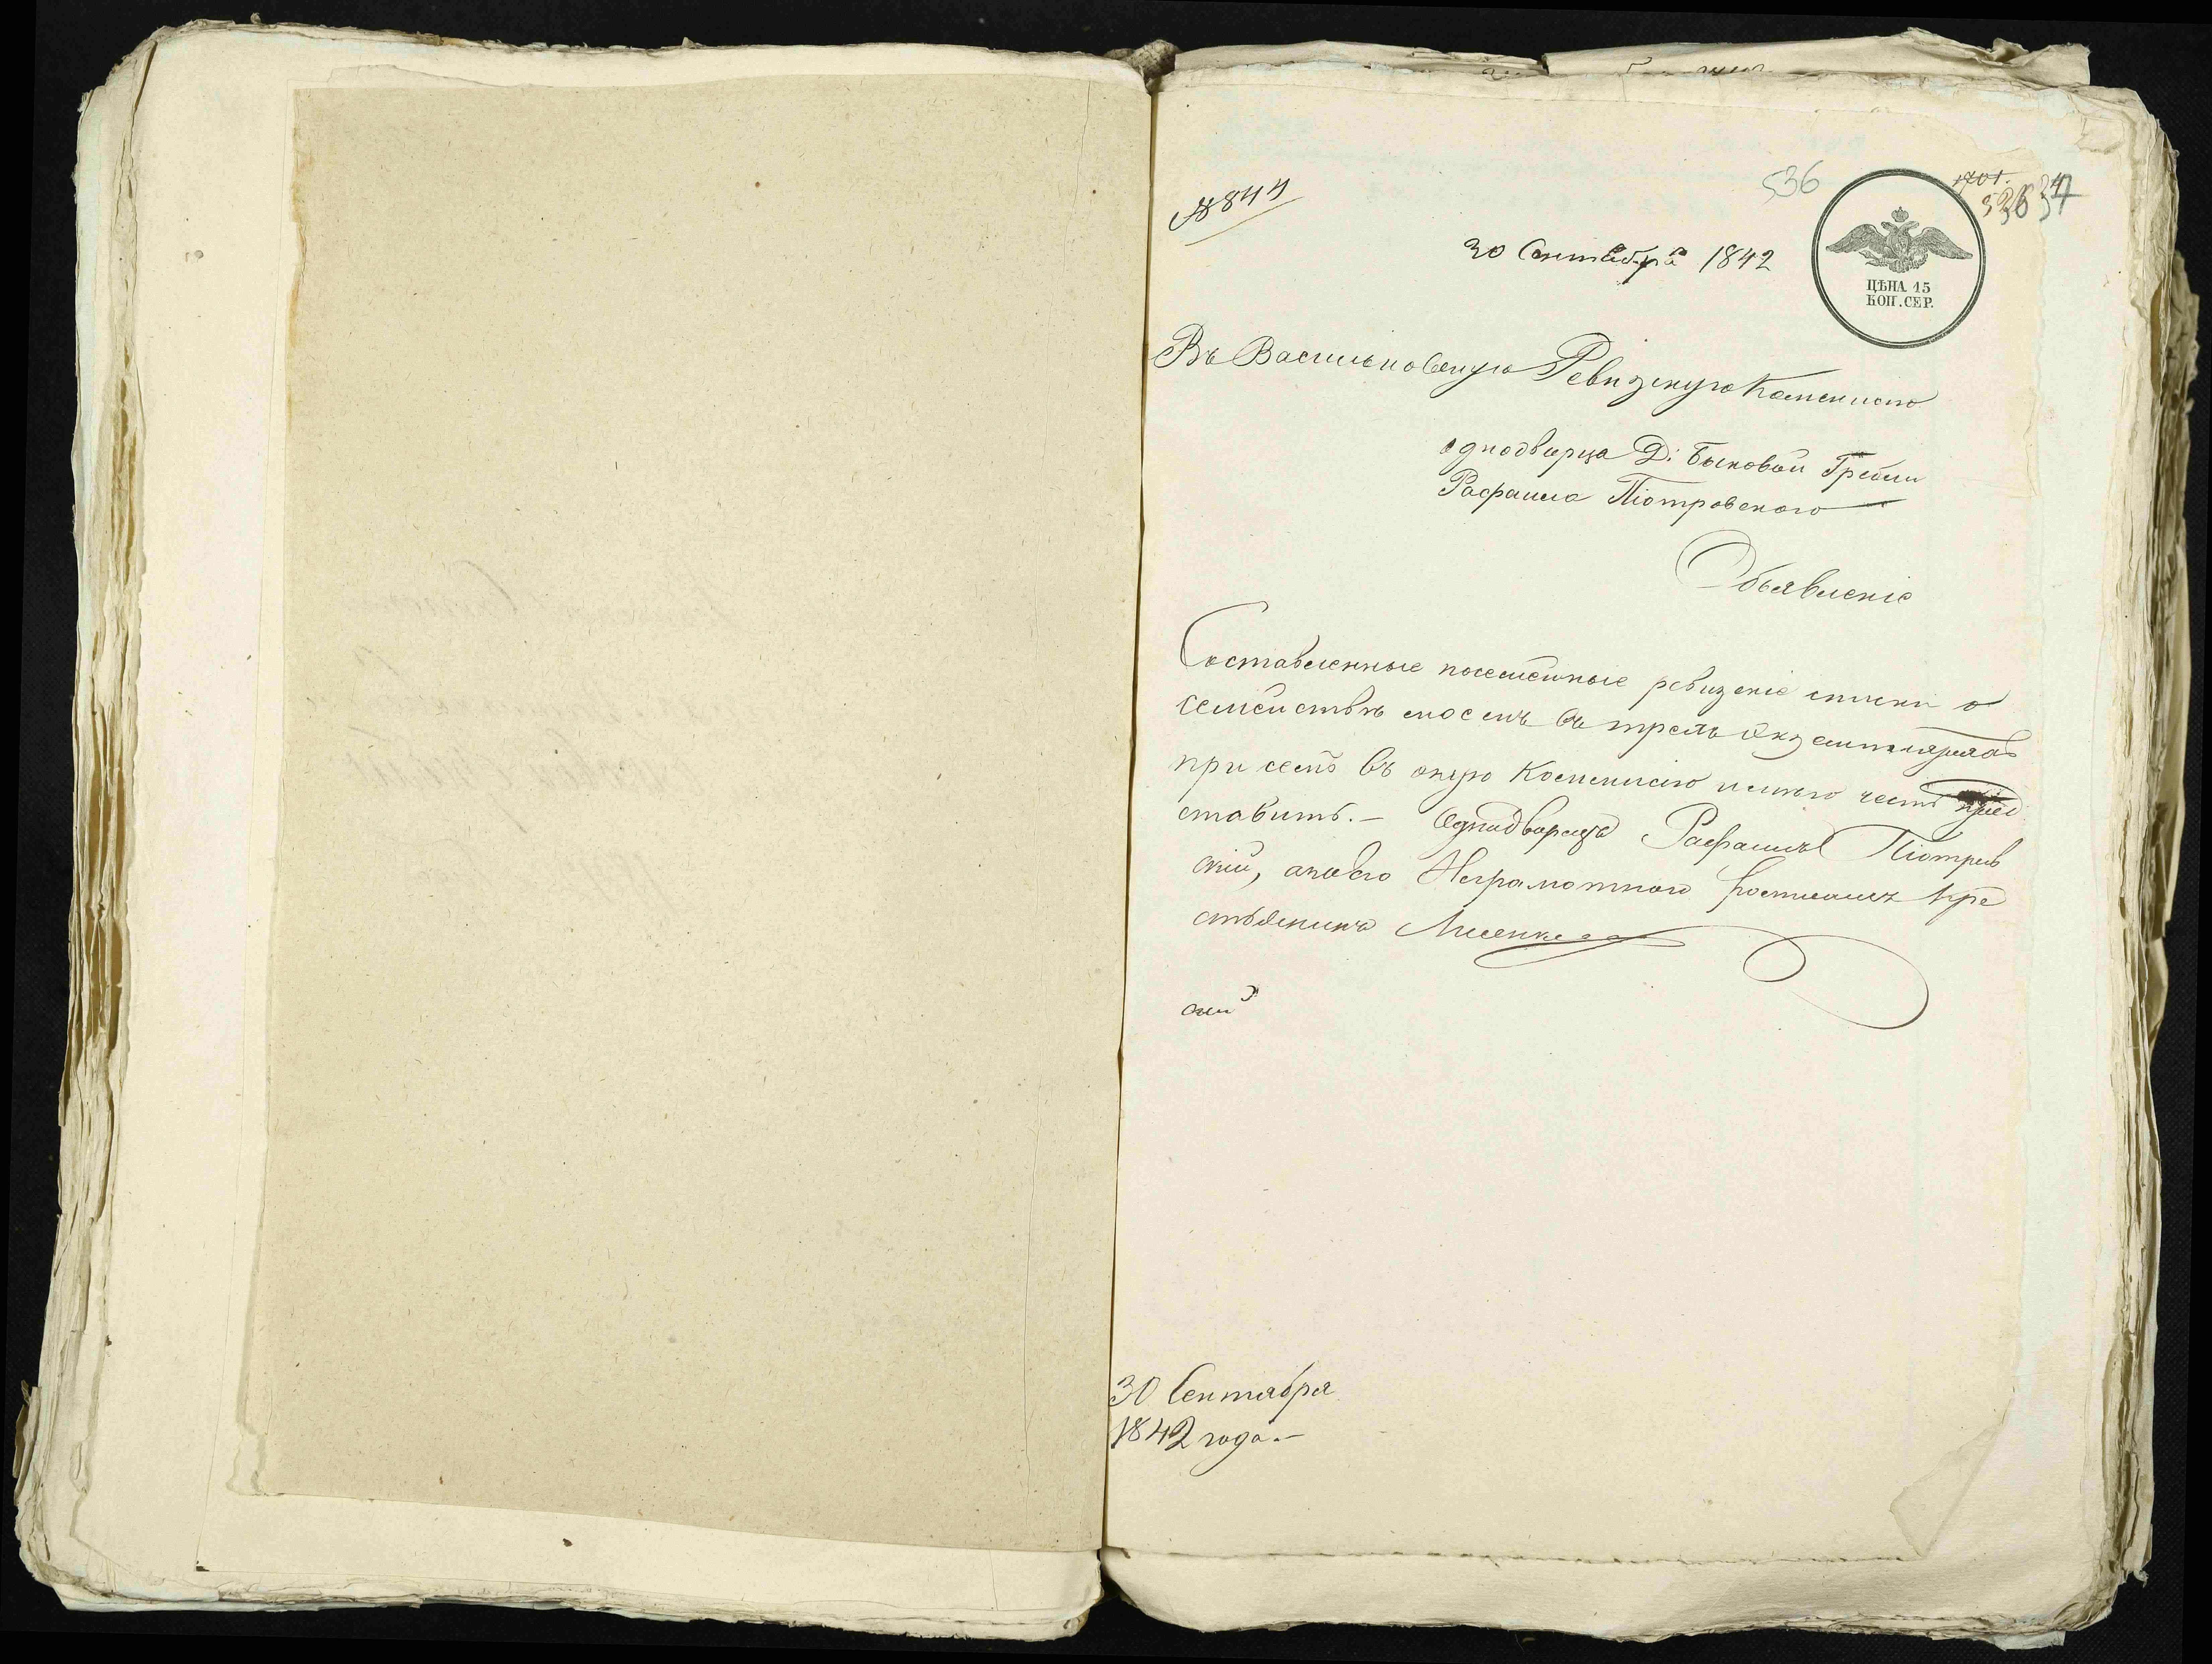 № 844
536
1701.
30 Сентября 1842
ЦѢНА 15
КОП. СЕР.
Въ Васильковскую Ревизскую Коммисию
однодворца Д: Быковой Гребли
Рафаила Піотровского
Объявленіе
Составленные посемейные ревизскіе списки о
семействѣ моемъ въ трехъ экземплярахъ
при семъ въ оную Коммисию имѣю честь пред
ставить. – Однодворецъ Рафаилъ Піотров
скій, а за его Неграмотного росписался кре
стьянинъ Лисенко
30 Сентября
1842 года. –